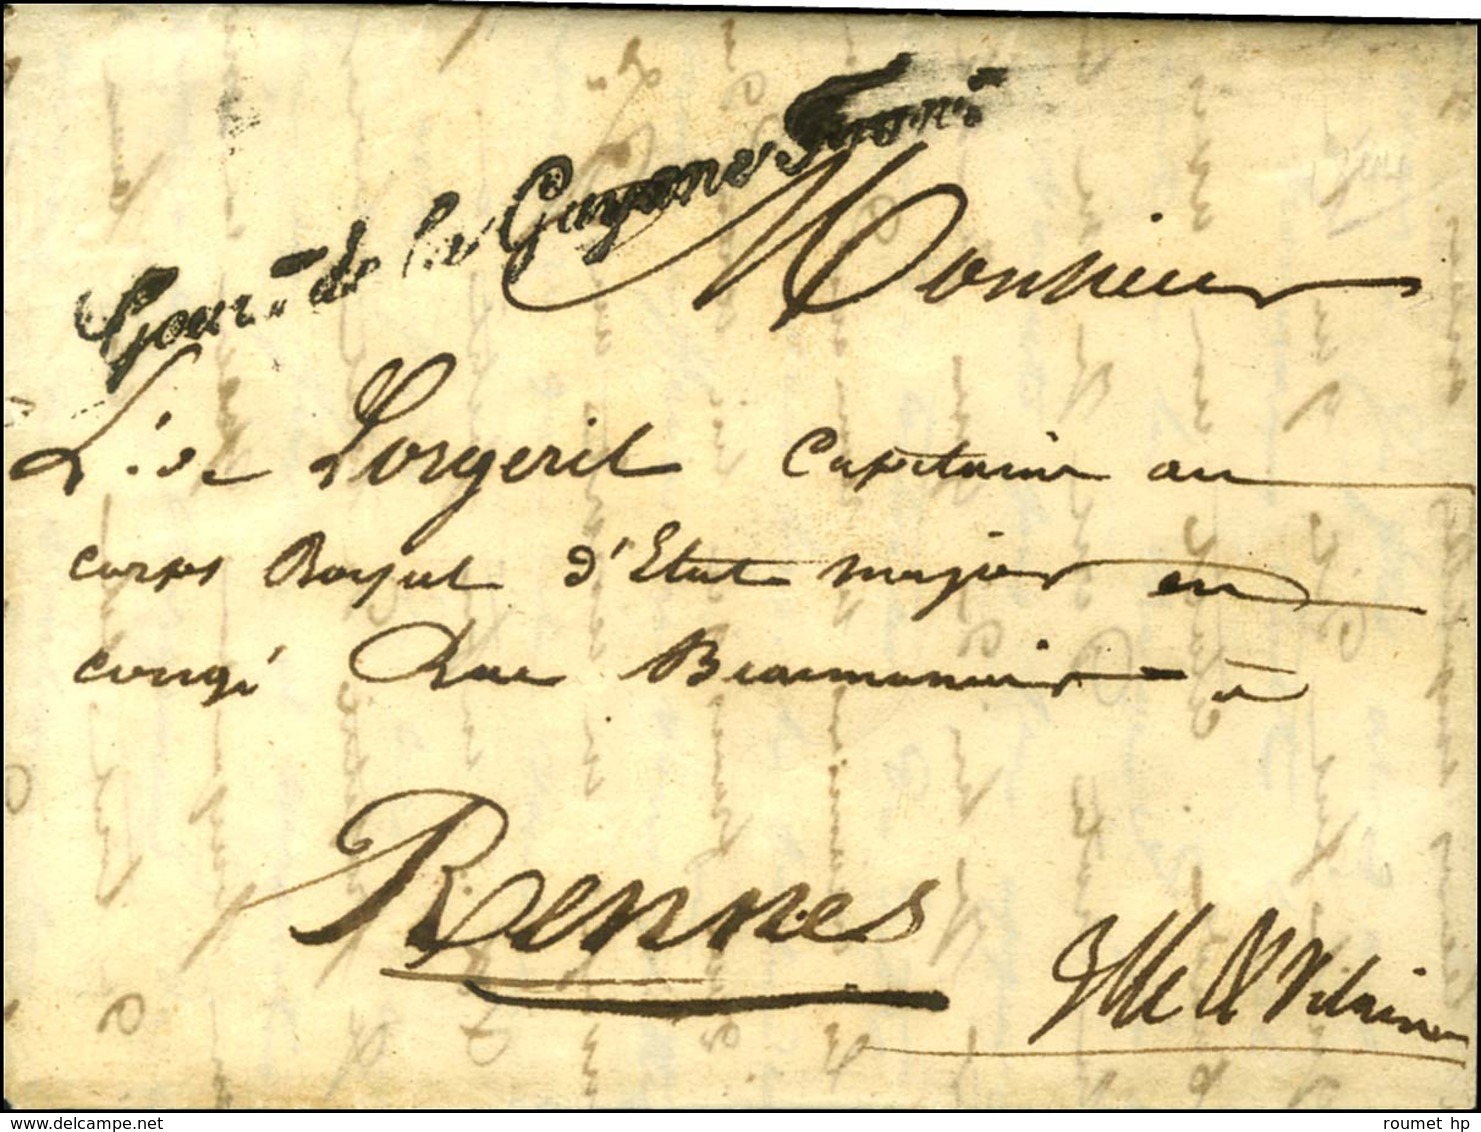 Gour.nt de la Guyane Franc.se
Monsieur
L.s de Lorgeril Capitaine au
corps Royal d'Etat major en
congé Rue Beaumanoir - à
Rennes
Ille & Vilaine
roumet hp